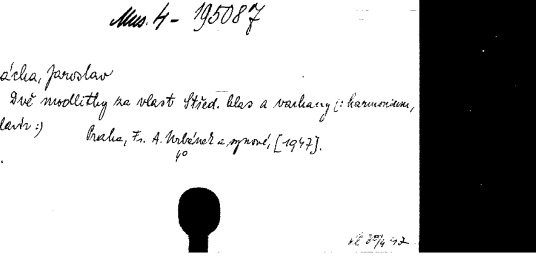 Mus. 4 - 195087
ácha, Jaroslav
Dvě modlitby za vlast Střed. hlas a varhany (: harmonium,
lavír :) Praha, Fr. A. Urbánek a synové, [1947].
4°